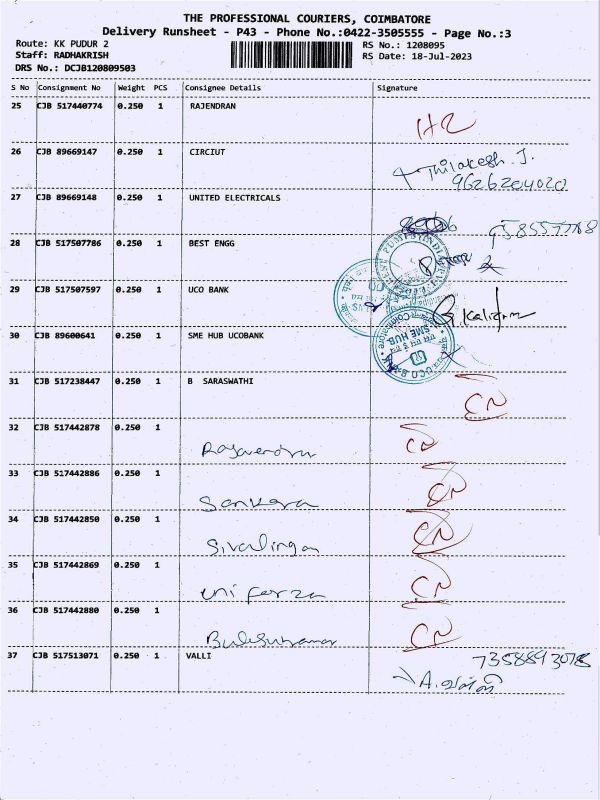 THE PROFESSIONAL COURIERS, COIMBATORE
Delivery Runsheet - P43 - Phone No.:0422-3505555 - Page No.:3
Route: KK PUDUR 2 RS No.: 1208095
Staff: RADHAKRISH RS Date: 18-Jul-2023
DRS No.: DCJB120809503
S No Consignment No Weight PCS Consignee Details Signature
25 CJB 517440774 0.250 1 RAJENDRAN
26 CJB 89669147 0.250 1 CIRCIUT Thilakesh. J.
9626204020
27 CJB 89669148 0.250 1 UNITED ELECTRICALS
28 CJB 517507786 0.250 1 BEST ENGG
29 CJB 517507597 0.250 1 UCO BANK
30 CJB 89600641 0.250 1 SME HUB UCOBANK
SME HUB
UCO BANK
31 CJB 517238447 0.250 1 B SARASWATHI
32 CJB 517442878 0.250 1
33 CJB 517442886 0.250 1 Sankara
34 CJB 517442850 0.250 1 Sivalingan
35 CJB 517442869 0.250 1 uniforza
36 CJB 517442880 0.250 1
37 CJB 517513071 0.250 1 VALLI